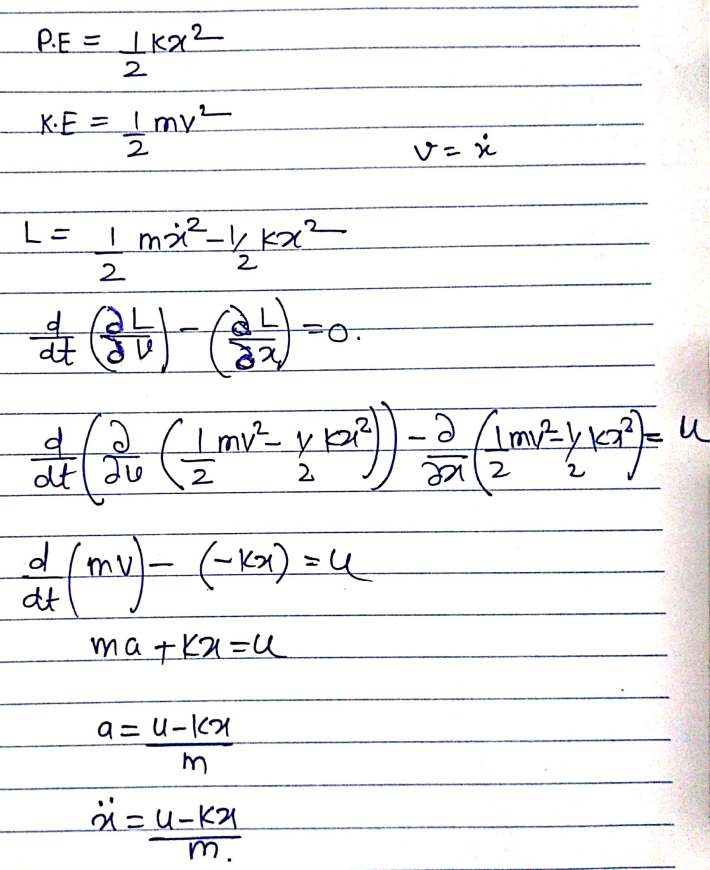 P.E = 1/2 kx²
K.E = 1/2 mv²
v = ẋ
L = 1/2 mẋ² - 1/2 kx²
d/dt (∂L/∂v) - (∂L/∂x) = 0.
d/dt (∂/∂v (1/2 mv² - 1/2 kx²)) - ∂/∂x (1/2 mv² - 1/2 kx²) = u
d/dt (mv) - (-kx) = u
ma + kx = u
a = u-kx/m
ẍ = u-kx/m.